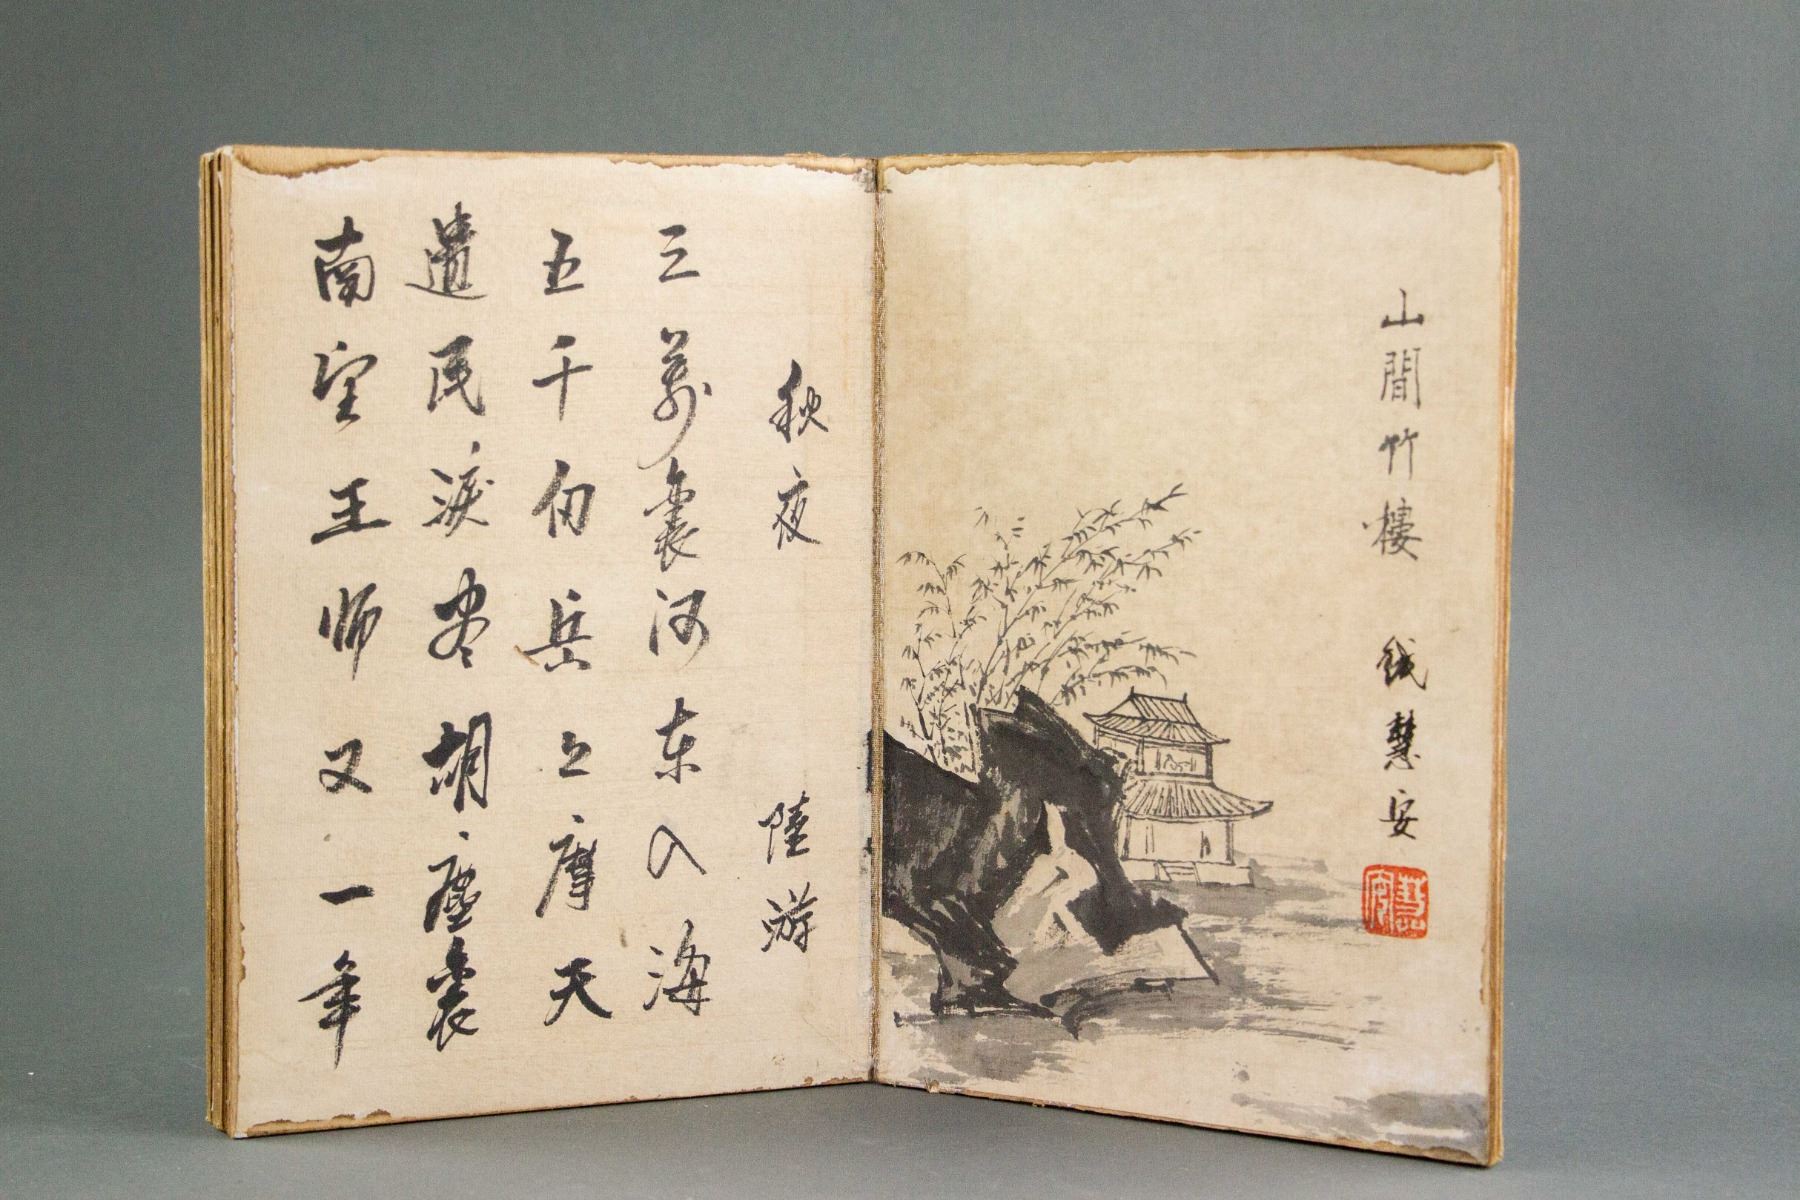 山間竹樓 錢慧安
慧安
秋夜 陸游
三萬裏河东入海
五千仞岳上摩天
遺民淚尽胡塵裏
南望王师又一年